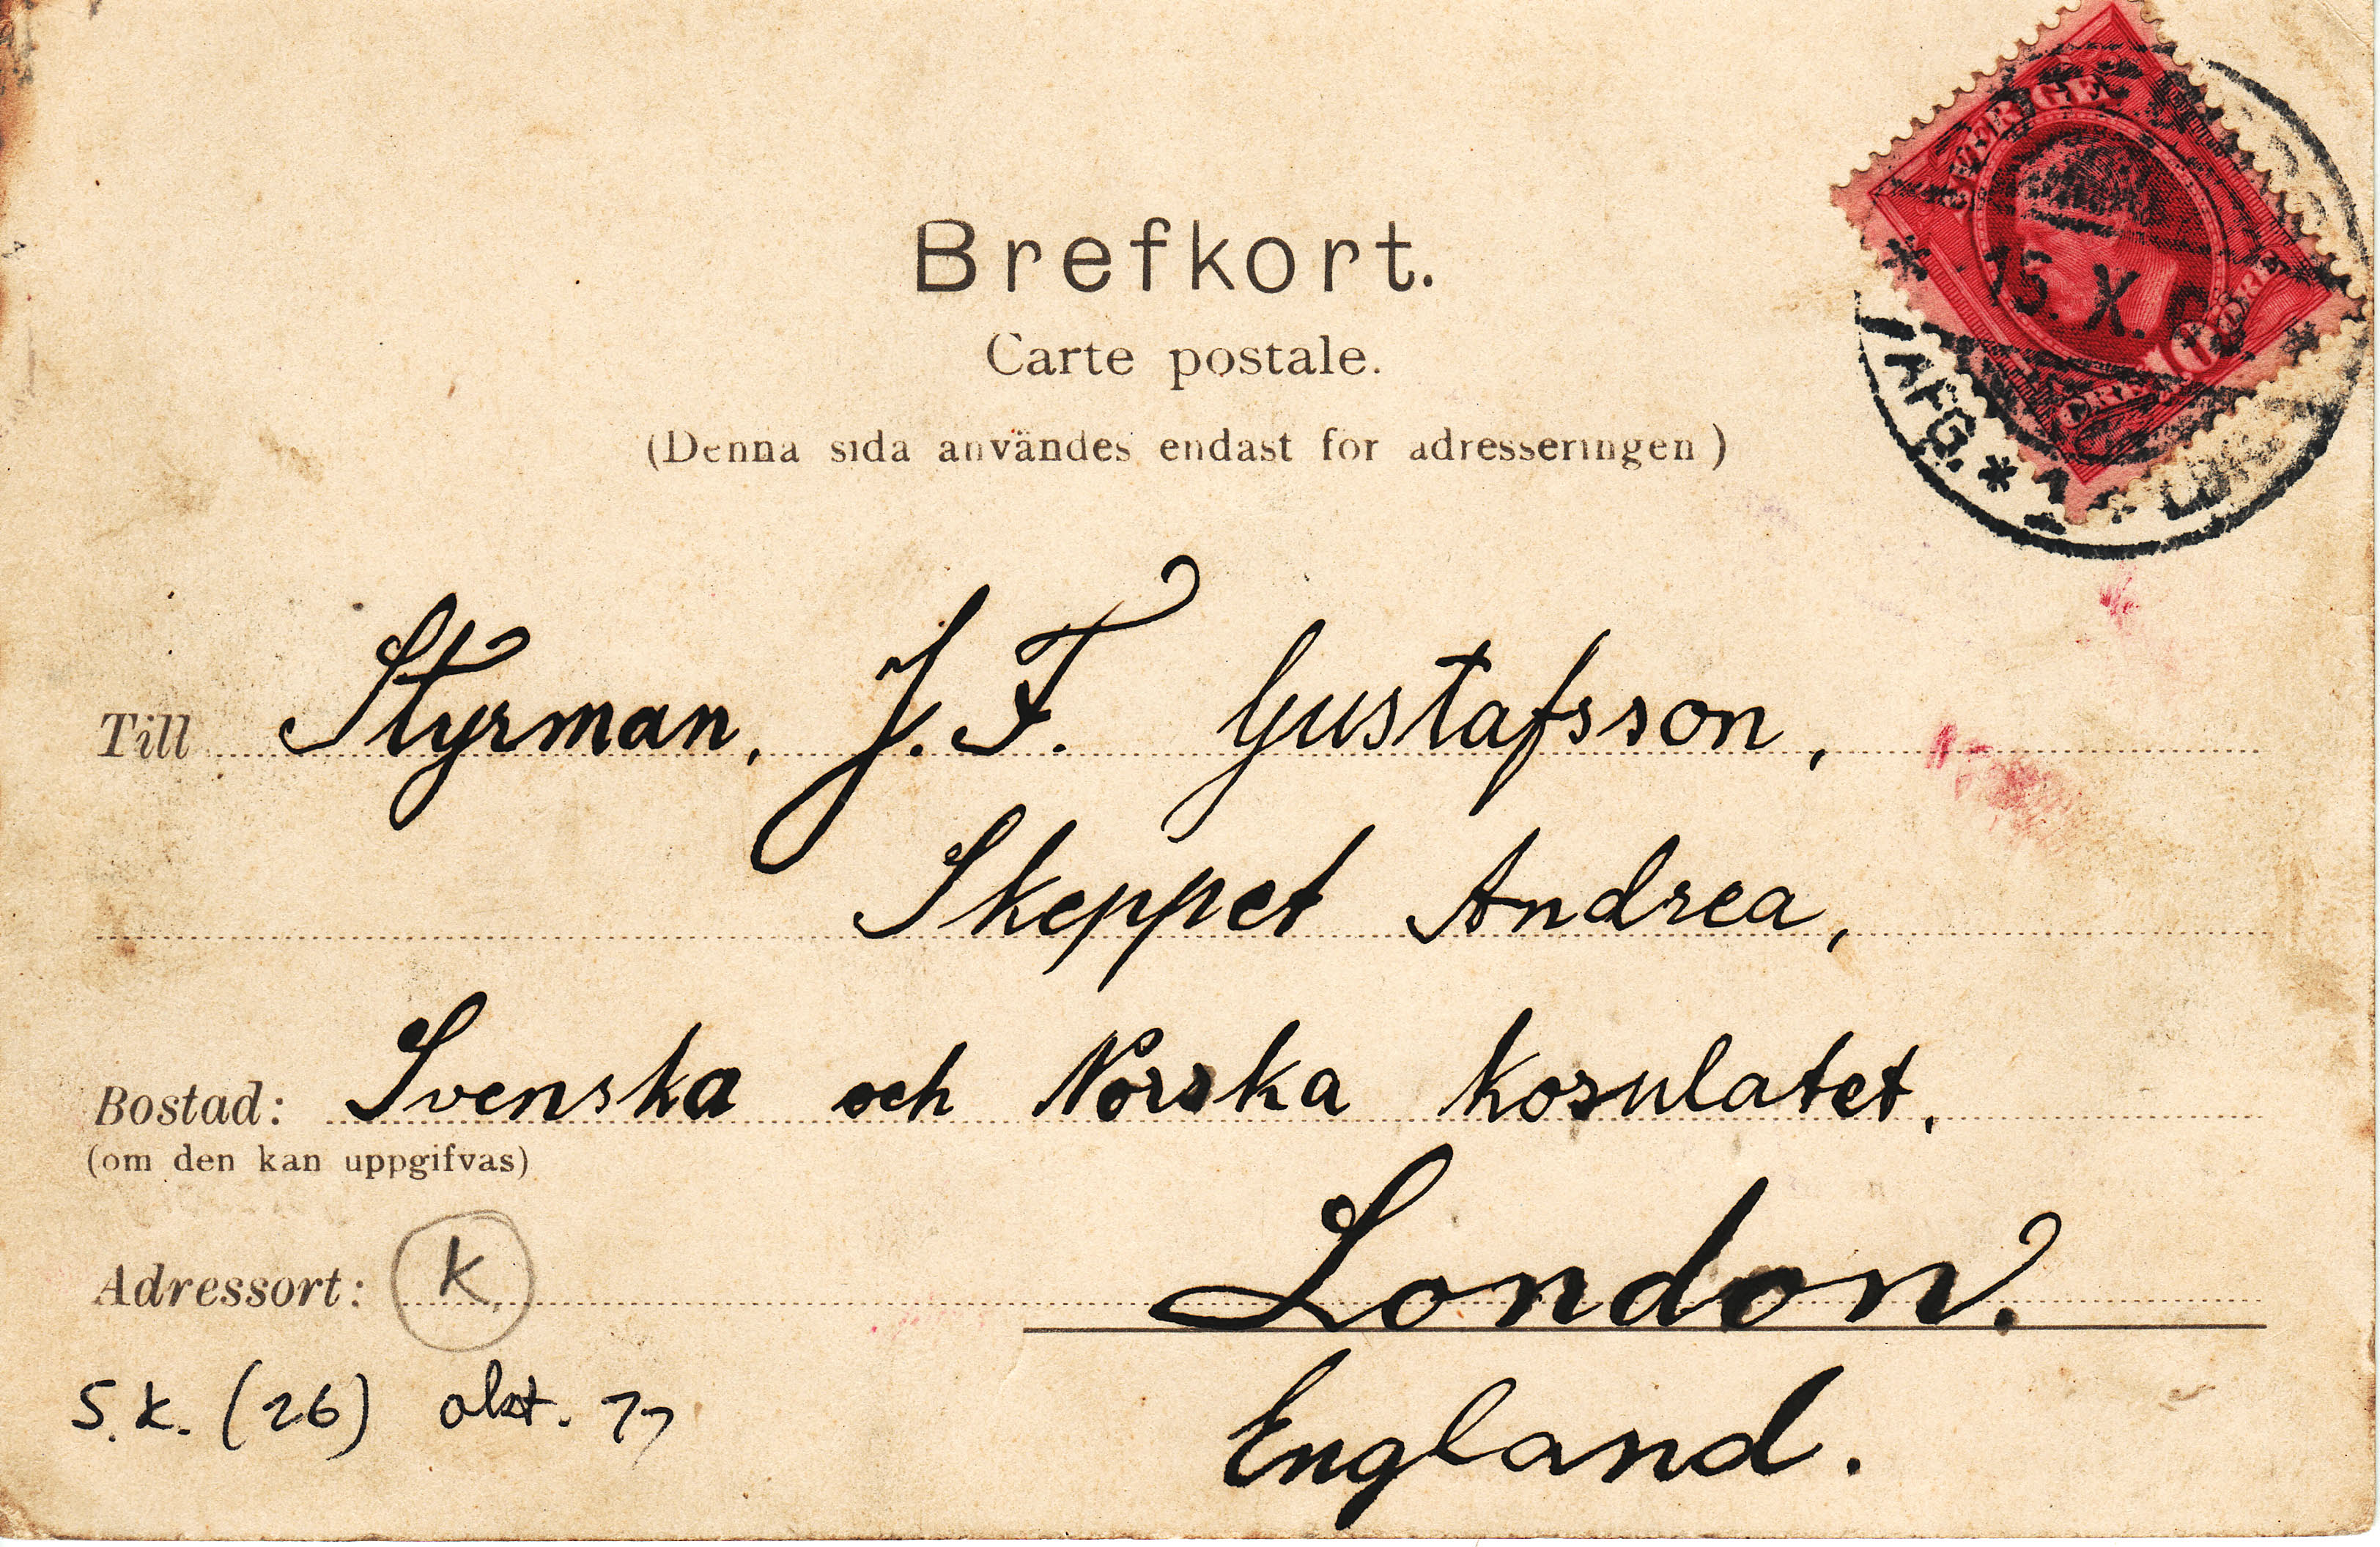 SVERGE
10
ÖRE
15. X.
AFG.
Brefkort.
Carte postale.
(Denna sida användes endast för adresseringen)
Till Styrman, J. F. Gustafsson,
Skeppet Andrea,
Bostad: Svenska och Norska Kosulatet,
(om den kan uppgifvas)
Adressort: K London.
England.
S.K. (26) okt. 77